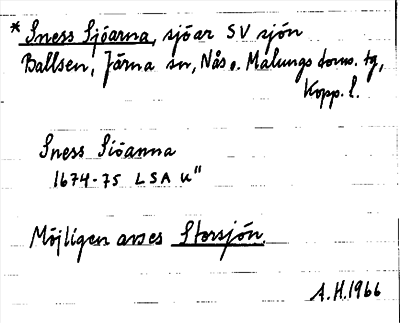 * Sness Sjöarna, sjöar SV sjön
Ballsen, Järna sn, Nås o. Malungs doms. tg,
Kopp. l.
Sness Siöanna
1674-75 LSA U"
Möjligen avses Storsjön.
A.H. 1966